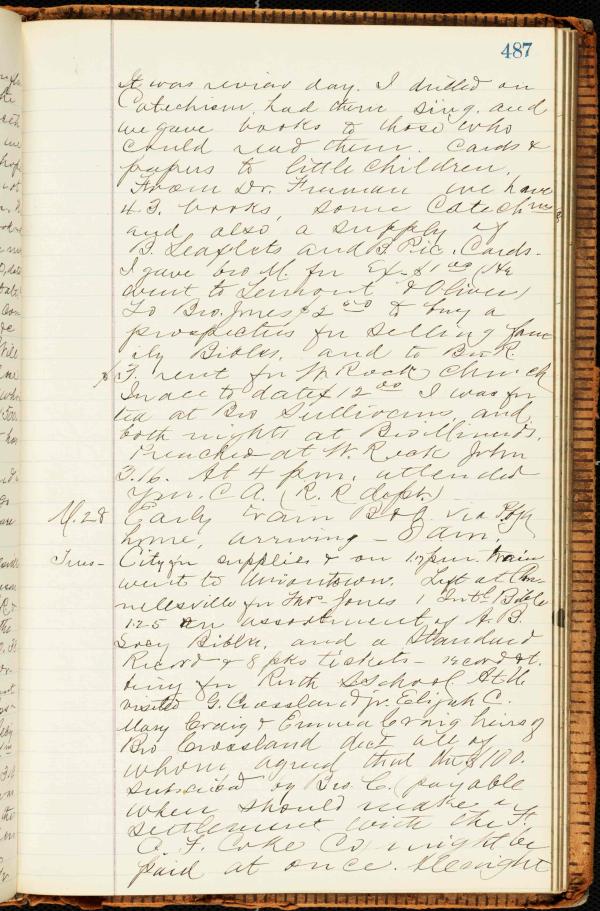 487
It was review day. I drilled on
Catechism, had them sing, and
we gave books to those who
could read them. Cards &
papers to little children.
From Dr. Freeman we have
43. books, some Catechms
and also a supply of
B. Leaflets and B. Pic. Cards.
I gave bro M. for Ex. $1.00 (He
went to Lemont & Oliver)
To Bro. Jones $2.00 to buy a
prospectus for selling fam
ily Bibles, and to Bro R.
F. rent for W Rock church
in acc to date $12.00 I was en
ted at Bro Sullivans, and
both nights at Bro Minerds.
Preached at W. Rock John
3.16. At 4 pm. attended
Y.m. C A. (R. R dept.
M. 28 Early train B & O via
home, arriving - 8 am.
Tues- City for supplies & on pm. train
went to Uniontown. Left at Con
nellsville for Thos Jones 1 Bible
1.25 an assortment of A. B.
Socy Bibles, and a Standard
Record & 8 pks tickets - record &
for Ruth S School. At U
visited G. Crossland jr. Elijah C.
Mary Craig & Emma Craig heirs of
Bro Crossland decd all of
whom agreed that the $100.
subscribed by Bro. C. (payable
when should make a
settlement with the F.
C. F. Coke Co) might be
paid at once. Alright